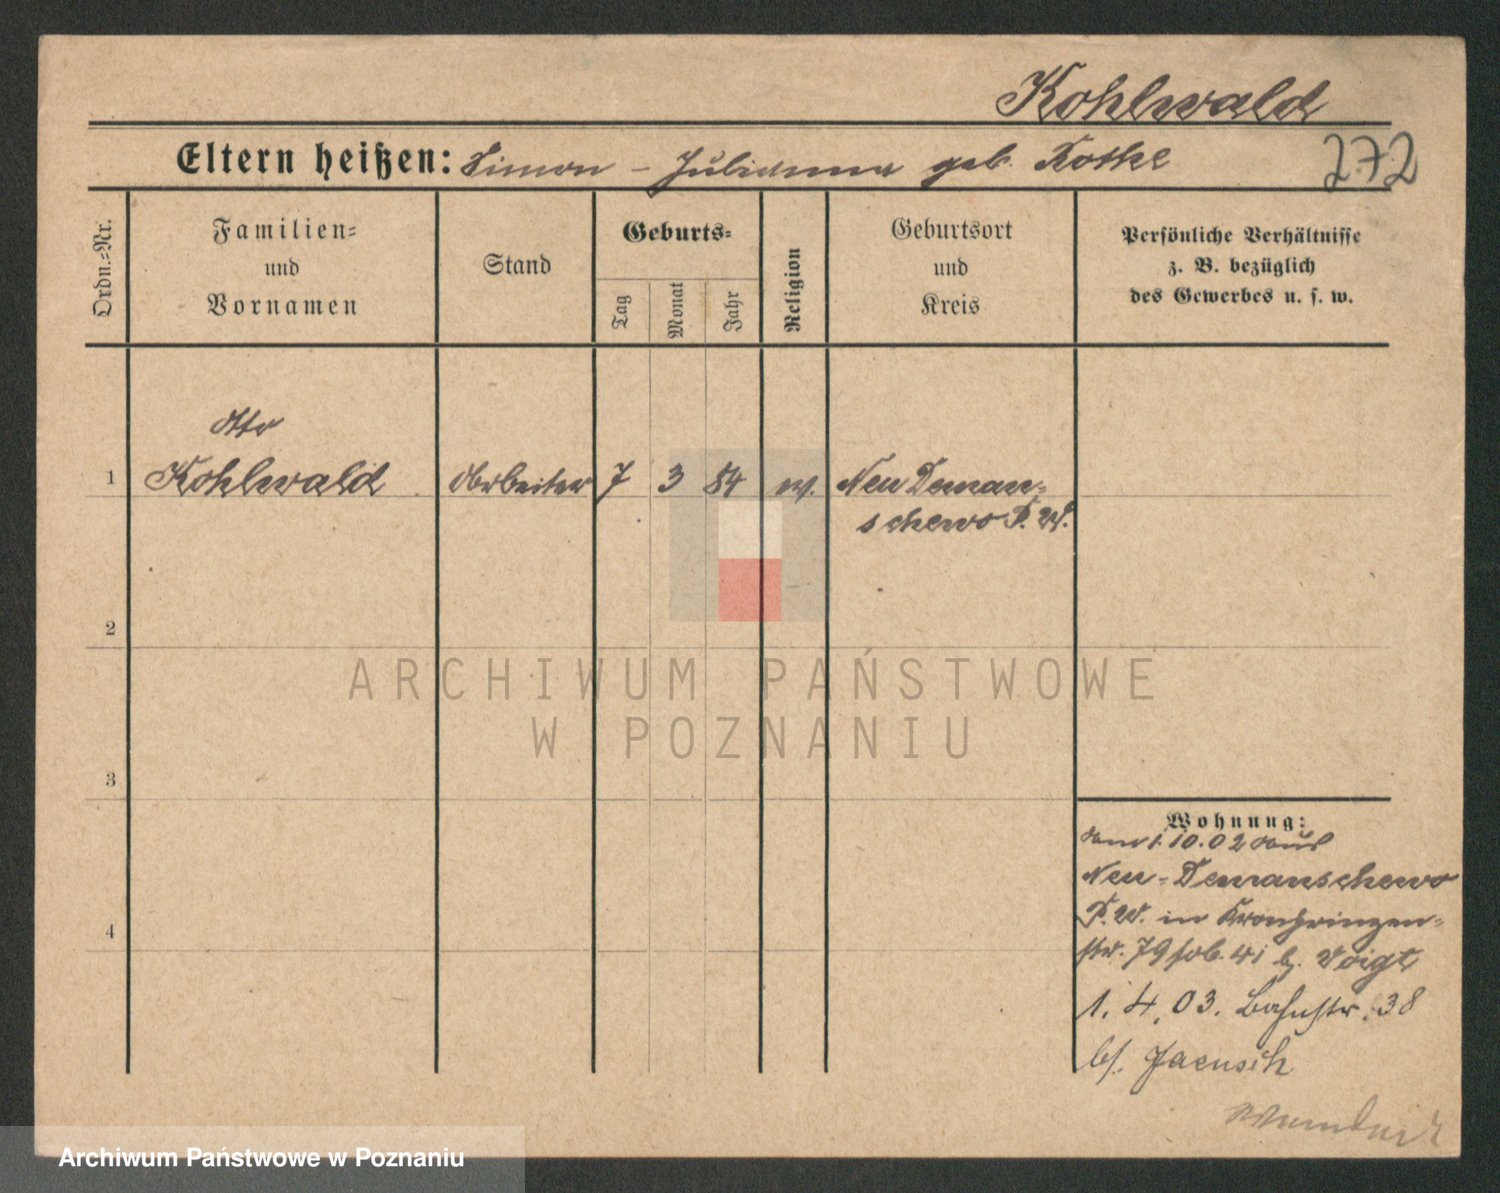 Kohlwald
Eltern heißen: Simon - Julianna geb. Kothe
272
Ordn.-Nr.
Familien-
und
Vornamen
Stand
Geburts-
Tag
Monat
Jahr
Religion
Geburtsort
und
Kreis
Persönliche Verhältnisse
z. B. bezüglich
des Gewerbes u. s. w.
Otto
1 Kohlwald Arbeiter 7 3 84 ev. Neu Deman-
schewo P. W.
2
3
4
Wohnung:
am 1.10.02 aus
Neu-Demanschewo
P. W. in Kronprinzen-
str. 79 b. Voigt
1. 4. 03. Bahnstr. 38
b/. Jaensch
ARCHIWUM PAŃSTWOWE
W POZNANIU
Archiwum Państwowe w Poznaniu